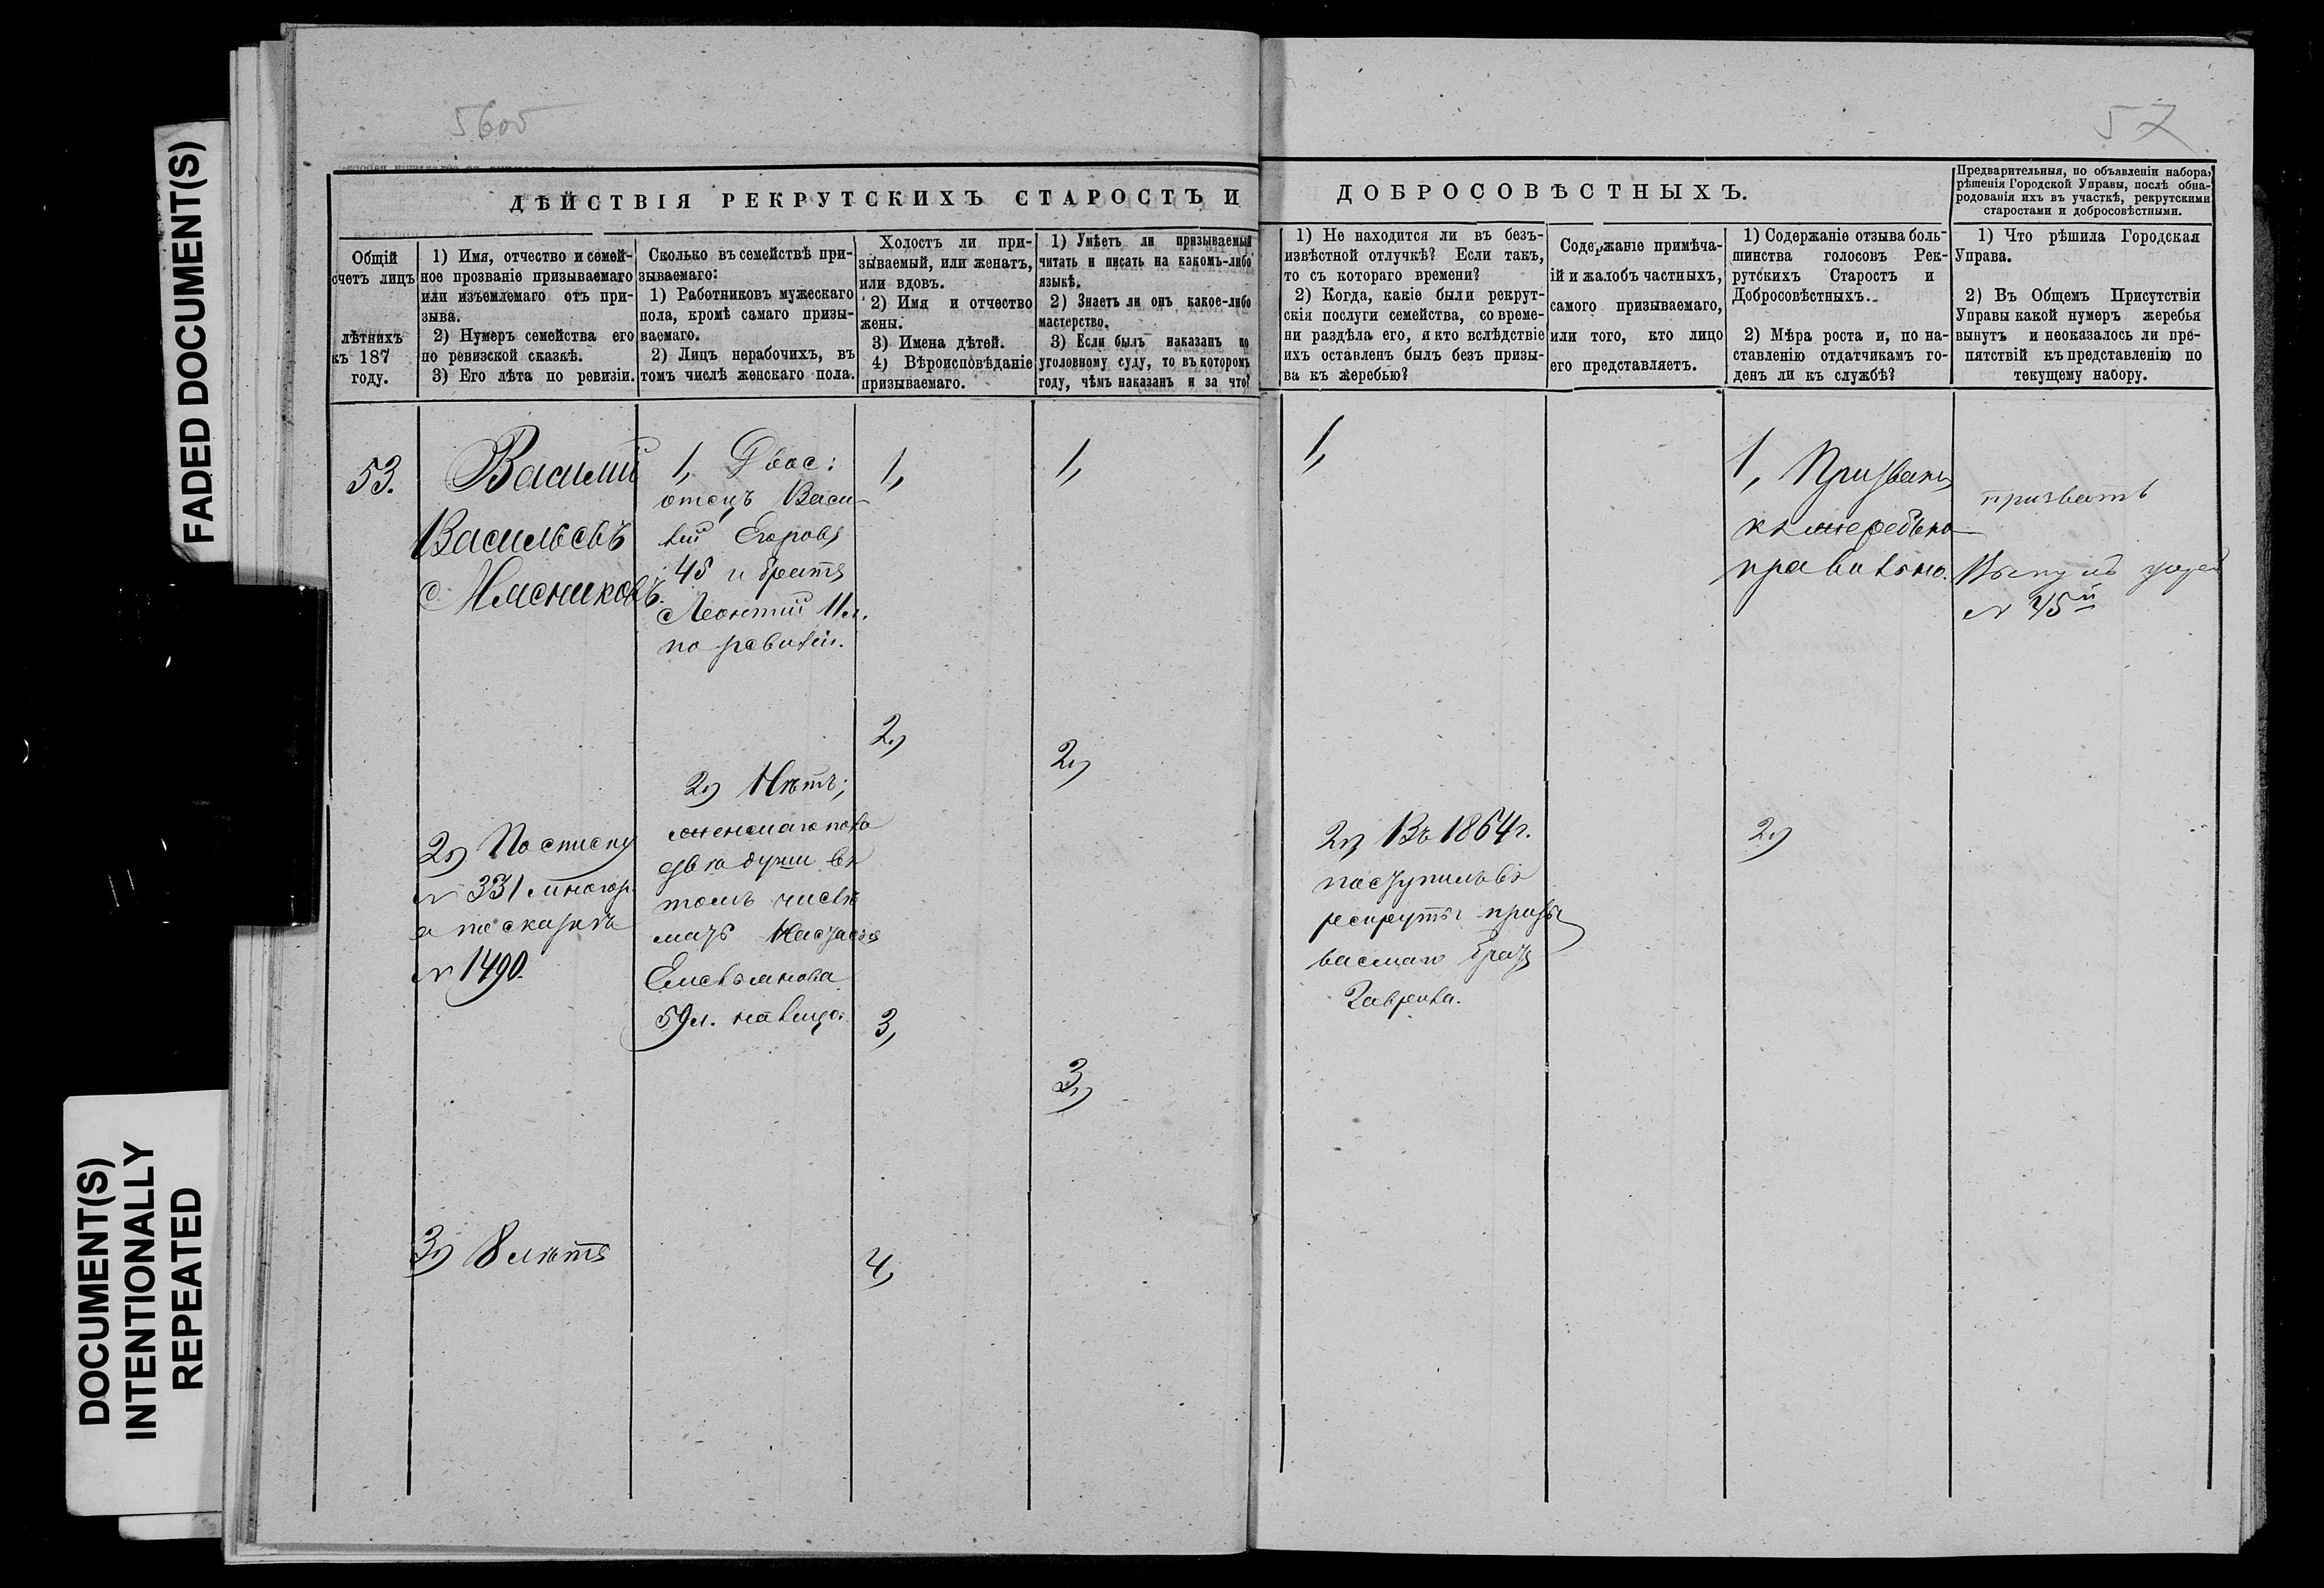 FADED DOCUMENT(S)
DOCUMENT(S)
INTENTIONALLY
REPEATED
56об
57
ДѢЙСТВІЯ РЕКРУТСКИХЪ СТАРОСТЪ И ДОБРОСОВѢСТНЫХЪ.
Предварительныя, по объявленіи набора,
рѣшенія Городской Управы, послѣ обна-
родованія ихъ въ участкѣ, рекрутскими
старостами и добросовѣстными.
Общій
счетъ лицъ
лѣтнихъ
къ 187
году.
1) Имя, отчество и семей-
ное прозваніе призываемаго
или изъемлемаго отъ при-
зыва.
2) Нумеръ семейства его
по ревизской сказкѣ.
3) Его лѣта по ревизіи.
Сколько въ семействѣ при-
зываемаго:
1) Работниковъ мужескаго
пола, кромѣ самаго призы-
ваемаго.
2) Лицъ нерабочихъ, въ
томъ числѣ женскаго пола.
Холостъ ли при-
зываемый, или женатъ,
или вдовъ.
2) Имя и отчество
жены.
3) Имена дѣтей.
4) Вѣроисповѣданіе
призываемаго.
1) Умѣетъ ли призываемый
читать и писать на какомъ-либо
языкѣ.
2) Знаетъ ли онъ какое-либо
мастерство.
3) Если былъ наказанъ по
уголовному суду, то въ которомъ
году, чѣмъ наказанъ и за что?
1) Не находится ли въ безъ-
извѣстной отлучкѣ? Если такъ,
то съ котораго времени?
2) Когда, какіе были рекрут-
скія послуги семейства, со време-
ни раздѣла его, и кто вслѣдствіе
ихъ оставленъ былъ безъ призы-
ва къ жеребью?
Содержаніе примѣча-
ній и жалобъ частныхъ,
самого призываемаго,
или того, кто лицо
его представляетъ.
1) Содержаніе отзыва боль-
шинства голосовъ Рек-
рутскихъ Старостъ и
Добросовѣстныхъ.
2) Мѣра роста и, по на-
ставленію отдатчикамъ го-
денъ ли къ службѣ?
1) Что рѣшила Городская
Управа.
2) Въ Общемъ Присутствіи
Управы какой нумеръ жеребья
вынутъ и неоказалось ли пре-
пятствій къ представленію по
текущему набору.
53.
Василій
Васильевъ
Мясниковъ.
2) По списку
№ 331
а по сказкѣ
№ 1490.
3) 8 лѣтъ
1, Двое:
отецъ Васи-
лій Егоровъ
45 и братъ
Леонтій 11 л.
по ревизіи.
2) Нѣтъ;
женскаго пола
двѣ души въ
томъ числѣ
мать Настасья
Емельянова
59 л. на лицо.
1,
2,
3,
4,
1,
2,
3,
1,
2) Въ 1864 г.
поступилъ въ
рекруты призы
ваемаго братъ
Гаврила.
1, Призванъ
къ жеребью
правильно.
2,
призвать
Вынулъ жереб
№ 45й